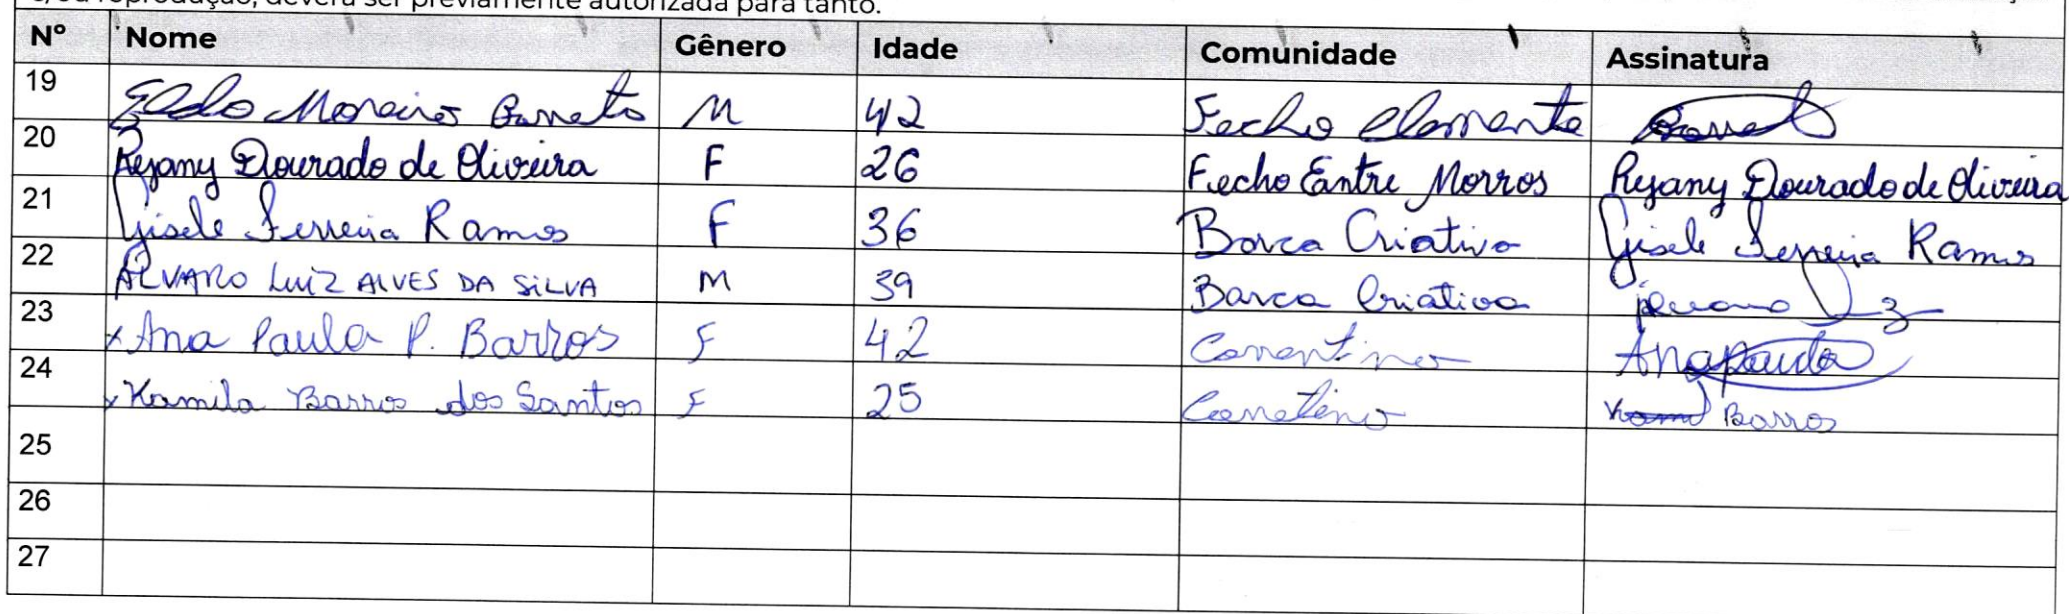 e/ou reprodução, deverá ser previamente autorizada para tanto.
Nº Nome Gênero Idade Comunidade Assinatura
19 Eldo Moreira Barreto M 42 Fecho Clemente
20 Rejany Dourado de Oliveira F 26 Fecho Entre Morros Rejany Dourado de Oliveira
21 Gisele Ferreira Ramos F 36 Barca Criativa Gisele Ferreira Ramos
22 ALVARO LUIZ ALVES DA SILVA M 39 Barca Criativa
23 x Ana Paula P. Barros F 42 Correntina Ana Paula
24 x Kamila Barros dos Santos F 25 Barros
25
26
27